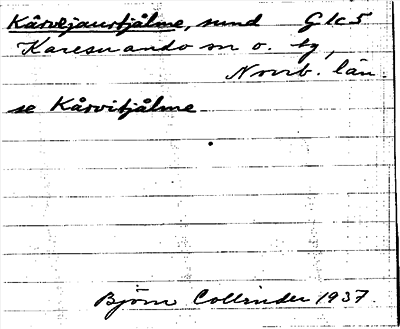 Kårvejaurtjålme, sund G1c5
Karesuando sn o. tg,
Norrb. län.
se Kårvitjålme
Björn Collinder 1937.